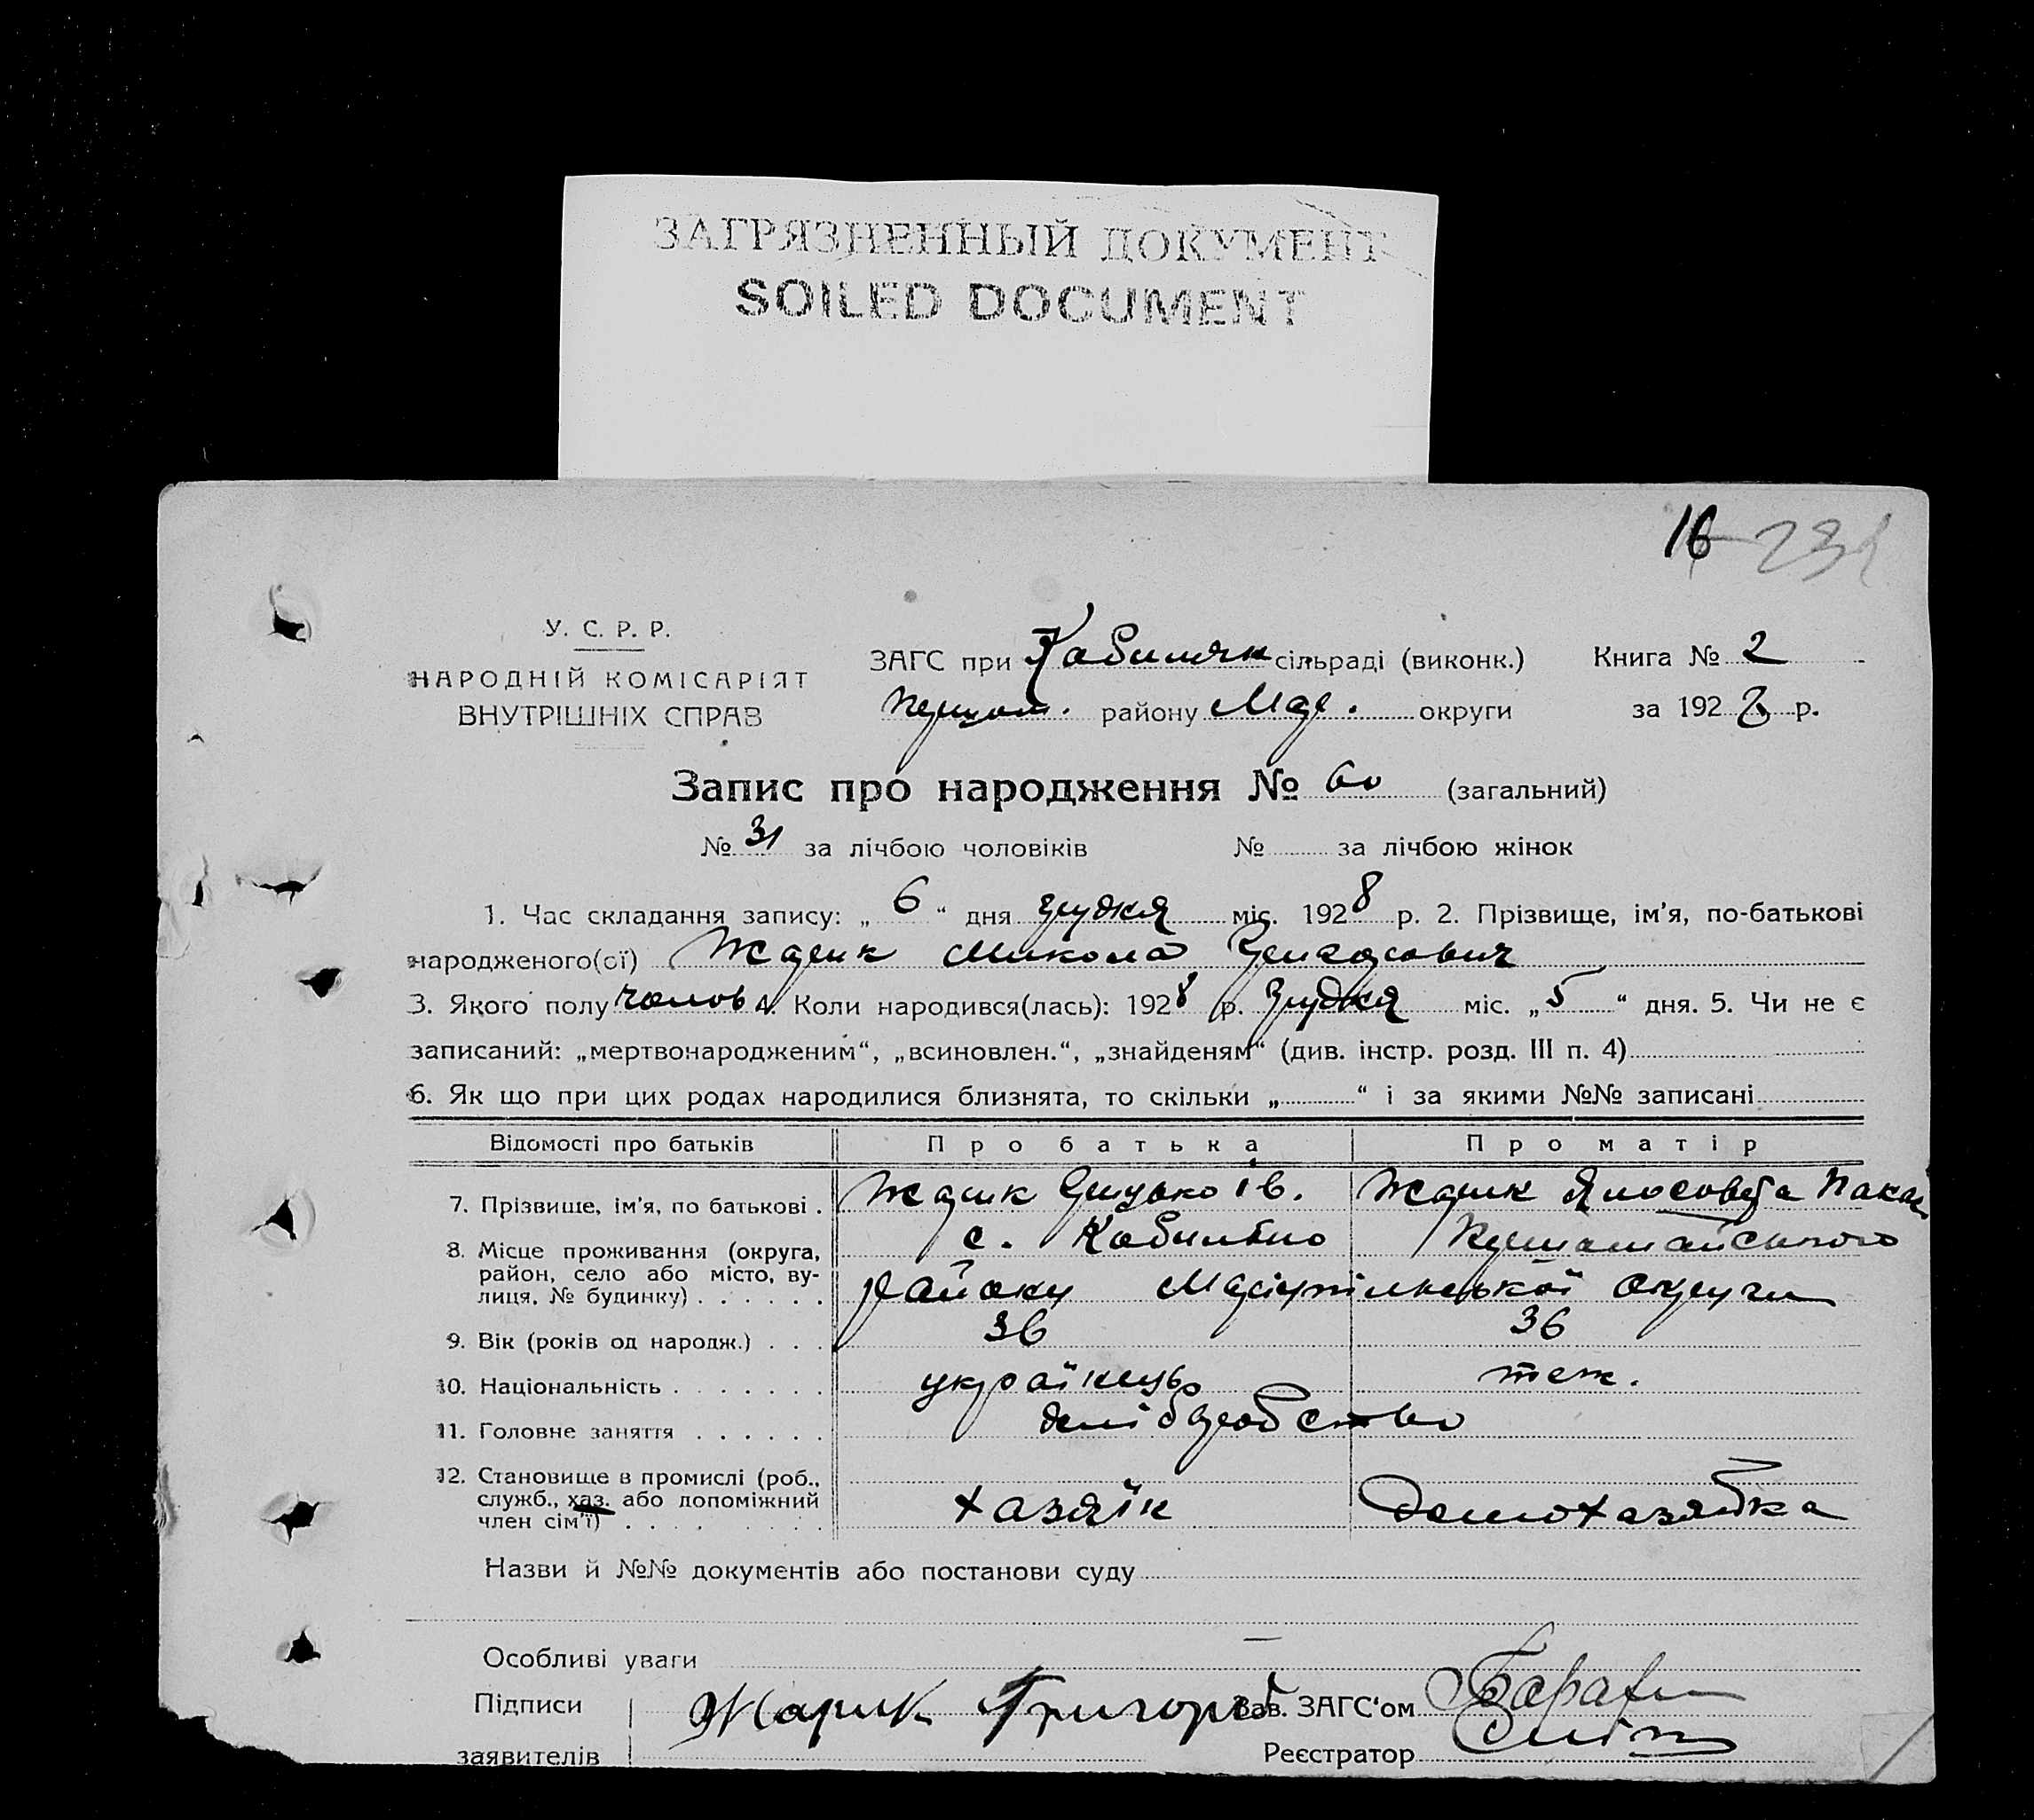 ЗАГРЯЗНЕННЫЙ ДОКУМЕНТ
SOILED DOCUMENT
16 231
У. С. Р. Р.
НАРОДНІЙ КОМІСАРІЯТ
ВНУТРІШНІХ СПРАВ
ЗАГС при сільраді (виконк.) Книга № 2
району округи за 1928 р.
Запис про народження № 60 (загальний)
№ 31 за лічбою чоловіків № за лічбою жінок
1. Час складання запису: „ 6 “ дня грудня міс. 1928 р. 2. Прізвище, ім'я, по-батькові
народженого(ої) Жарик Микола Григорович
3. Якого полу чолов 4. Коли народився(лась): 1928 р. Грудня міс. „ 5 “ дня. 5. Чи не є
записаний: „мертвонародженим“, „всиновлен.“, „знайденям“ (див. інстр. розд. III п. 4)
6. Як що при цих родах народилися близнята, то скільки „ “ і за якими №№ записані
Відомості про батьків Про батька Про матір
7. Прізвище, ім'я, по батькові . Жарик Грицько Ів. Жарик
8. Місце проживання (округа, с.
район, село або місто, ву- району Маріупільської округи
лиця, № будинку) . . . . . .
9. Вік (років од народж.) . . . 36 36
10. Національність . . . . . . . українець теж.
11. Головне заняття . . . . . . хліборобство
12. Становище в промислі (роб.,
служб., хаз. або допоміжний хазяїн домохазяйка
член сім'ї) . . . . . . . . .
Назви й №№ документів або постанови суду
Особливі уваги —
Підписи Жарик Григорій Зав. ЗАГС'ом
заявителів Реєстратор